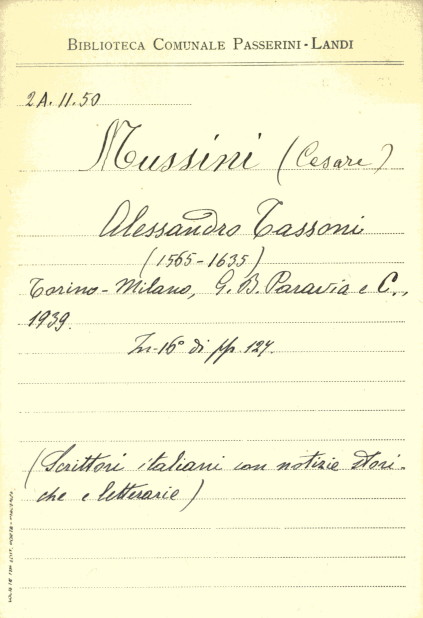 BIBLIOTECA COMUNALE PASSERINI-LANDI
2A.11.50
Mussini (Cesare)
Alessandro Tassoni
(1565-1635)
Torino-Milano, G. B. Paravia e C.,
1939.
In-16° di pp. 127.
(Scrittori italiani con notizie stori-
che e letterarie)